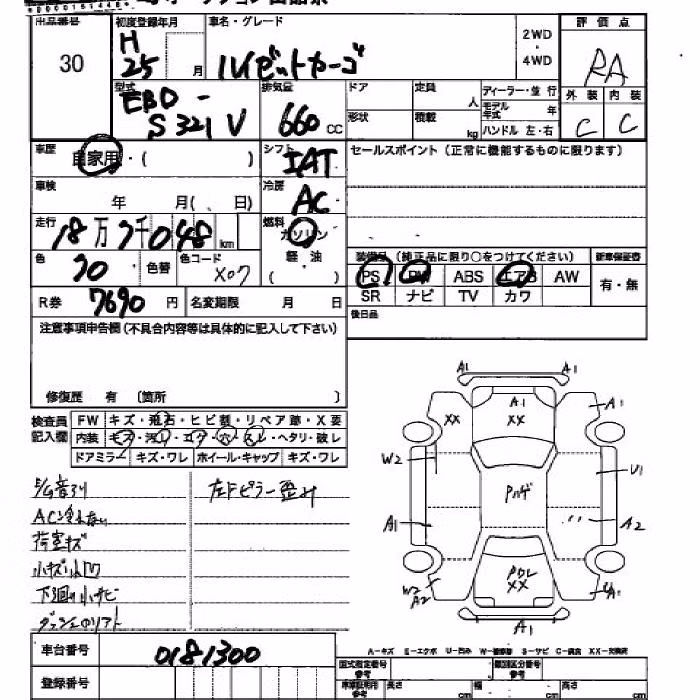 *D0000151448*
出品番号 初度登録年月 車名・グレード 2WD・4WD 評価点
30 H25 月 ハイゼットカーゴ RA
型式 排気量 ドア 定員 人 ディーラー・並行 外装 内装
EBD-S321V 660 CC 形状 積載 kg モデル年式 年 ハンドル 左・右 C C
車歴 自家用・( ) シフト IAT セールスポイント(正常に機能するものに限ります)
車検 年 月( 、 日) 冷房 AC
走行 18万7千048km 燃料 ガソリン 軽油 ( )
装備品(純正品に限り○をつけてください) 新車保証書
色 色替 色コード X07 PS PW ABS エアB AW 有・無
SR ナビ TV カワ
R券 7690円 名変期限 月 日 後日品
注意事項申告欄(不具合内容等は具体的に記入して下さい)
修復歴 有 (箇所 )
検査員記入欄 FW キズ・飛石・ヒビ割・リペア跡・X要
内装 キズ・汚レ・コゲ・穴・スレ・ヘタリ・破レ
ドアミラー キズ・ワレ ホイール・キャップ キズ・ワレ
左Fピラー歪み
AC冷えない
荷室キズ
小キズ小凹
下廻り小サビ
A1 A1
A1 XX XX A1
W2 Pハゲ U1
A1 A2
W2 A2 XX A1
A1
A-キズ E-エクボ U-凹み W-補修跡 S-サビ C-腐食 XX-交換済
車台番号 0181300
型式指定番号 参考 類別区分番号 参考
登録番号 車庫証明用参考 長さ cm 幅 cm 高さ cm